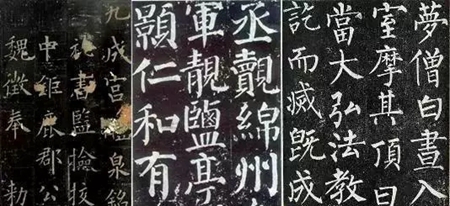 九成宮醴泉銘
秘書監檢校
中鉅鹿郡公
魏徵奉 勑
丞覿綿州
軍靚鹽亭
顥仁和有
夢僧白晝入
室摩其頂曰
當大弘法教
訖而滅既成